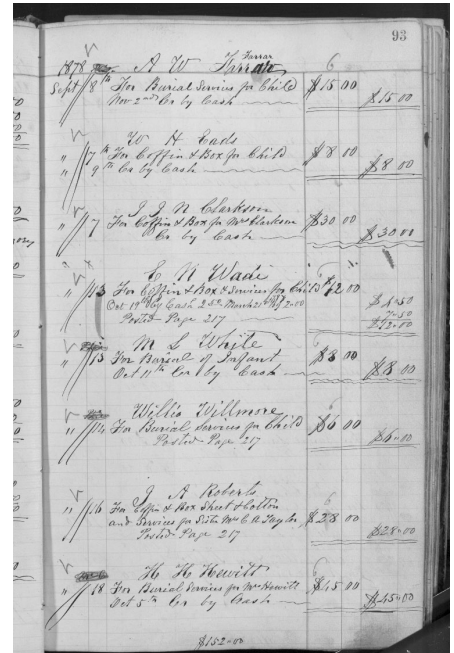 93
1878 A W Farrar Farrar 6
Sept 8th For Burial Services for Child $15 00
Nov 2nd Cr by Cash $15.00
W H Eads
" 7th For Coffin & Box for Child $8 00
" 9th Cr by Cash $8.00
J J N Clarkson
" 7 For Coffin & Box for Mrs Clarkson $30 00
Cr by Cash $30.00
E N Wadi 6
" 13 For Coffin & Box & Services for Child $12 00
Oct 19th by Cash March 21st $4.50
Posted Page 217 7.50
$12.00
M L White 6
" 13 For Burial of Infant $8 00
Oct 11th Cr by Cash $8.00
Willis Willmore
" 14 For Burial Services for Child $6 00
Posted Page 217 $6.00
J A Roberts 6
" 16 For Coffin & Box Sheet & Cotton
and Services for Mrs C A Taylor $28 00
Posted Page 217 $28.00
H H Hewitt 6
" 18 For Burial Services for Mrs Hewitt $45 00
Oct 5th Cr by Cash $45.00
$152.00